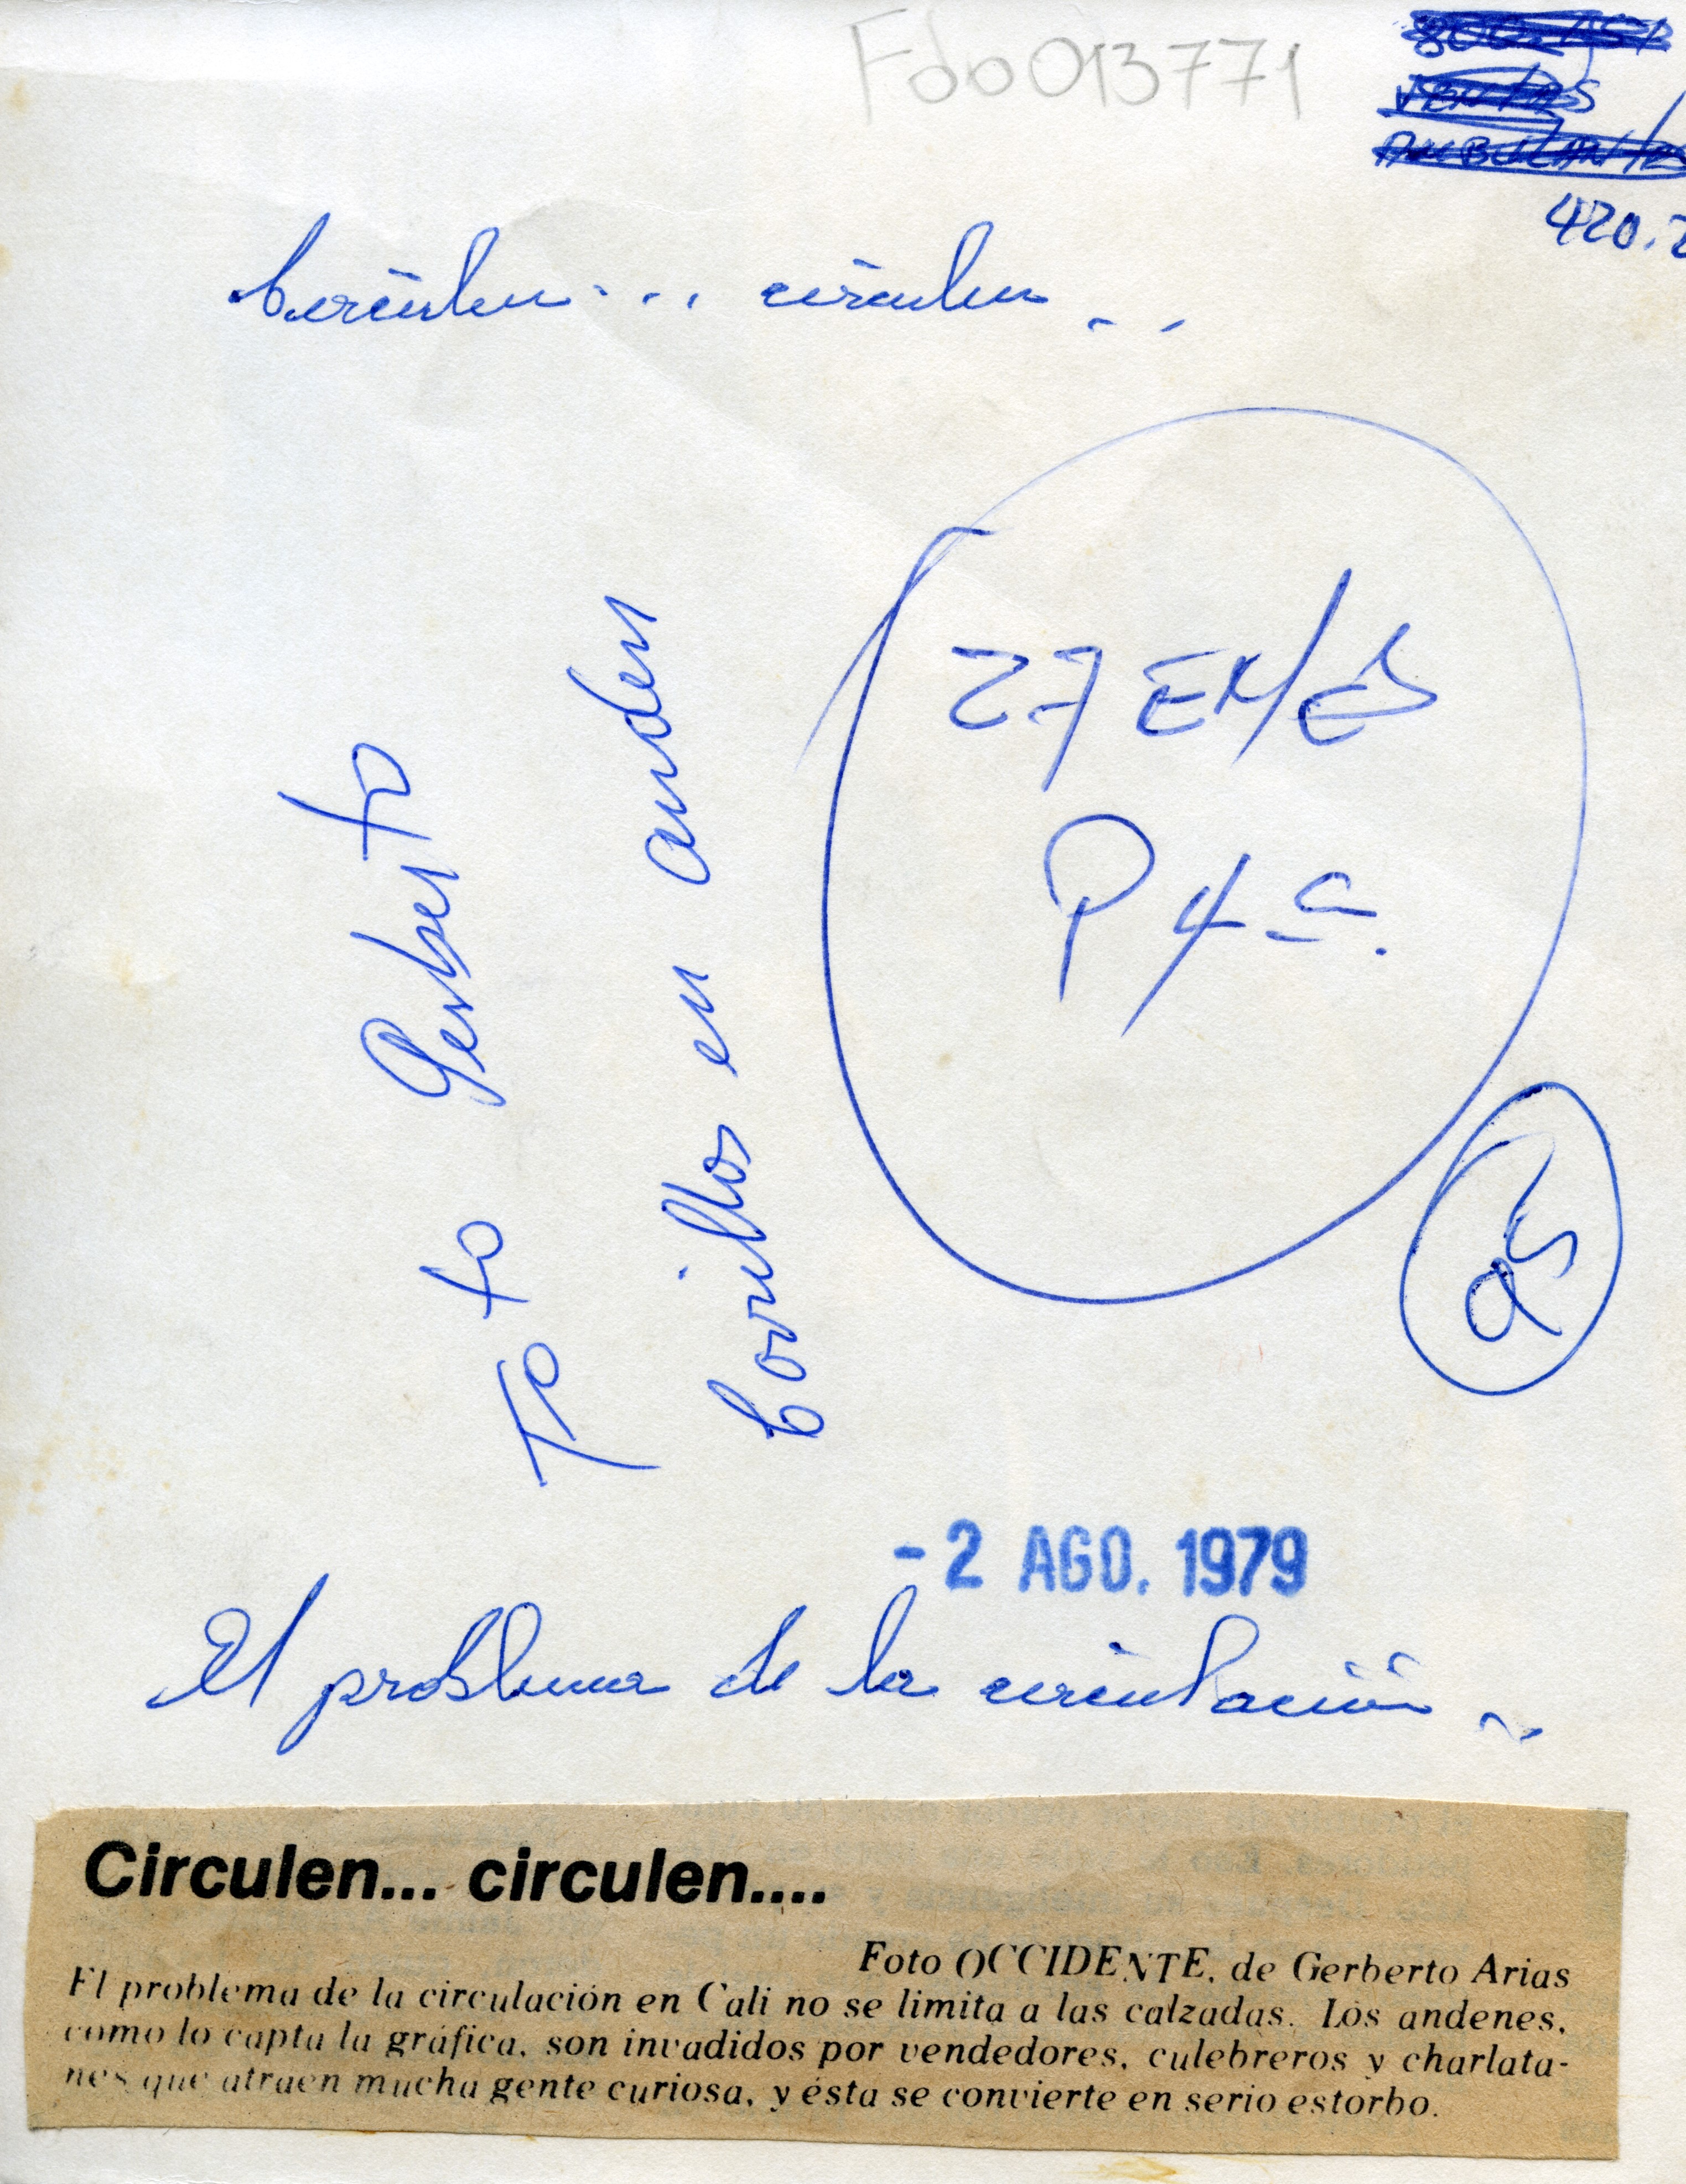 Fdo013771
VENTAS
AMBULANTES
420.2
Circulen... circulen...
27 EN/
P 4
Foto Gerberto
Corrillos en anden
95
-2 AGO. 1979
El problema de la circulación...
Circulen... circulen....
Foto OCCIDENTE, de Gerberto Arias
El problema de la circulación en Cali no se limita a las calzadas. Los andenes,
como lo capta la gráfica, son invadidos por vendedores, culebreros y charlata-
nes que atraen mucha gente curiosa, y ésta se convierte en serio estorbo.